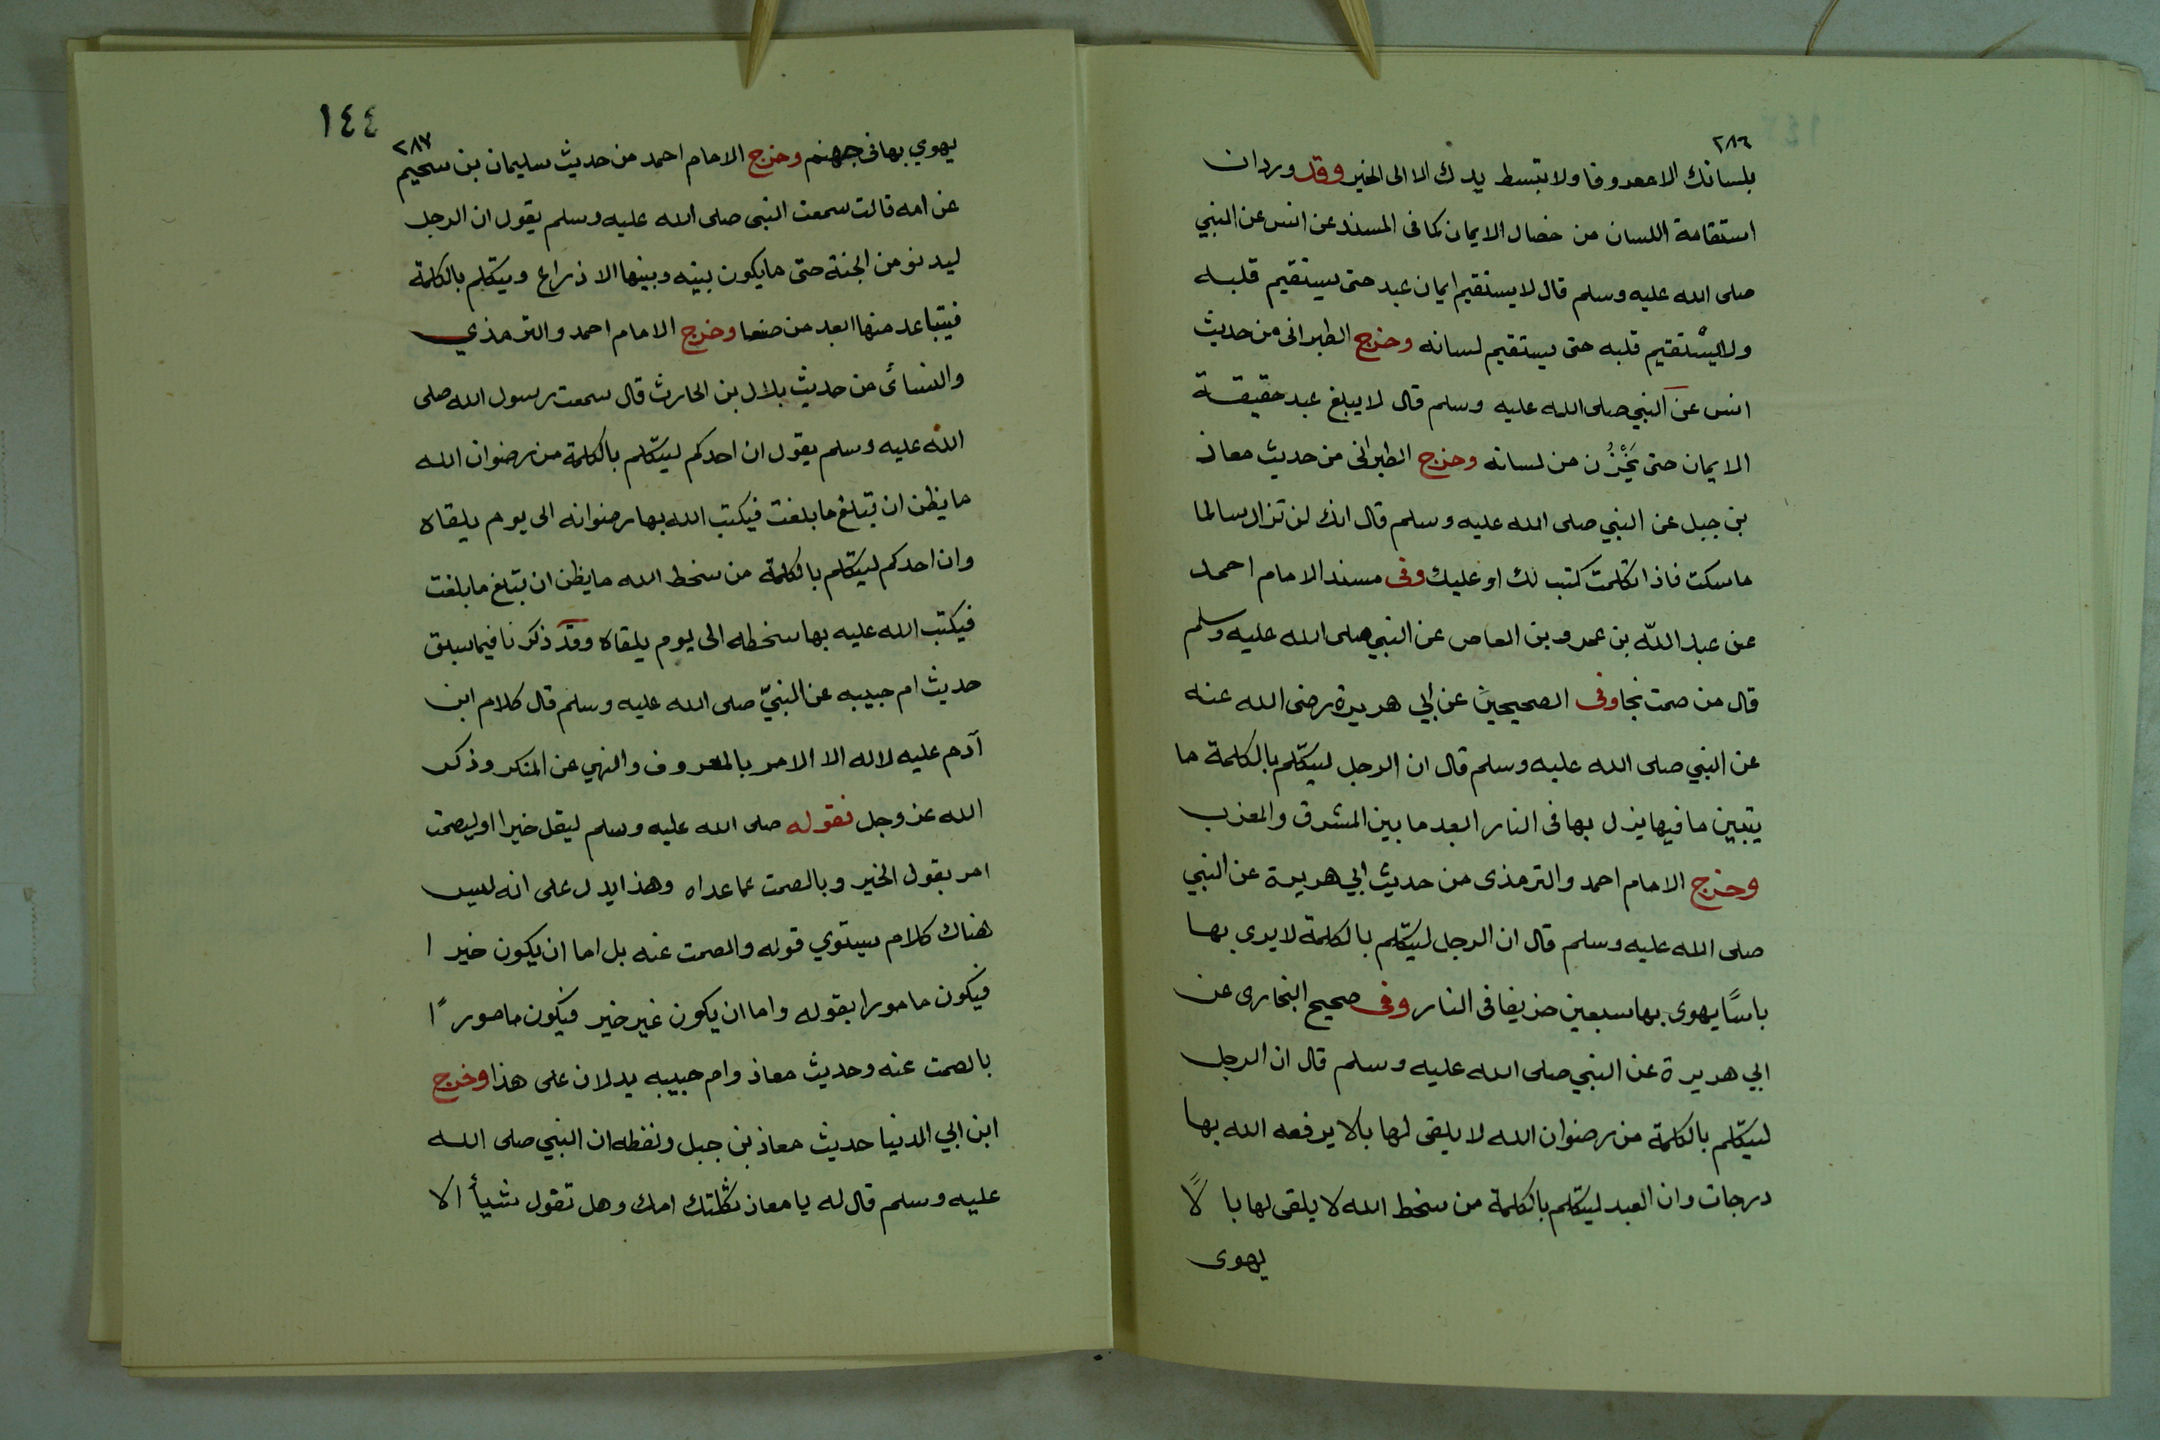 ٢٨٦
بلسانك الا معروفا ولا تبسط يدك الا الى الخير وقد ورد ان
استقامة اللسان من خصال الايمان كما فى المسند عن انس عن النبي
صلى الله عليه وسلم قال لا يستقيم ايمان عبد حتى يستقيم قلبه
ولا يسْتقيم قلبه حتى يستقيم لسانه وخرج الطبرانى من حديث
انس عن النبي صلى الله عليه وسلم قال لا يبلغ عبد حقيقة
الايمان حتى يَخْزُن من لسانه وخرج الطبرانى من حديث معاذ
بن جبل عن النبي صلى الله عليه وسلم قال انك لن تزال سالما
ما سكت فاذا تكلمت كتب لك او عليك وفى مسند الامام احمد
عن عبد اللّه بن عمرو بن العاص عن النبي صلى الله عليه وسلم
قال من صمت نجا وفى الصحيحين عن ابي هريرة رضى الله عنه
عن النبي صلى الله عليه وسلم قال ان الرجل ليتكلم بالكلمة ما
يتبين ما فيها يزل بها فى النار ابعد ما بين المشرق والمغرب
وخرج الامام احمد والترمذى من حديث ابي هريرة عن النبي
صلى الله عليه وسلم قال ان الرجل ليتكلم بالكلمة لا يرى بها
باسًا يهوى بها سبعين خريفا فى النار وفى صحيح البخارى عن
ابي هريرة عن النبي صلى الله عليه وسلم قال ان الرجل
ليتكلم بالكلمة من رضوان الله لا يلقى لها بالا يرفعه الله بها
درجات وان العبد ليتكلم بالكلمة من سخط الله لا يلقى لها بالًا
يهوى
١٤٤
٢٨٧
يهوي بها فى جهنم وخرج الامام احمد من حديث سليمان بن سحيم
عن امه قالت سمعت النبى صلى الله عليه وسلم يقول ان الرجل
ليدنو من الجنة حتى ما يكون بينه وبينها الا ذراع ويتكلم بالكلمة
فيتباعد منها ابعد من صنعا وخرج الامام احمد والترمذي
والنسائى من حديث بلال بن الحارث قال سمعت رسول الله صلى
الله عليه وسلم يقول ان احدكم ليتكلم بالكلمة من رضوان الله
ما يظن ان تبلغ ما بلغت فيكتب الله بها رضوانه الى يوم يلقاه
وان احدكم ليتكلم بالكلمة من سخط الله ما يظن ان تبلغ ما بلغت
فيكتب الله عليه بها سخطه الى يوم يلقاه وقد ذكرنا فيما سبق
حديث ام حبيبه عن النبيّ صلى الله عليه وسلم قال كلام ابن
آدم عليه لا له الا الامر بالمعروف والنهي عن المنكر وذكر
الله عز وجل فقوله صلى الله عليه وسلم ليقل خيرا او ليصمت
امر بقول الخير وبالصمت عما عداه وهذا يدل على انه ليس
هناك كلام يستوي قوله والصمت عنه بل اما ان يكون خيرا
فيكون مامورا بقوله واما ان يكون غير خير فيكون مامورًا
بالصمت عنه وحديث معاذ وام حبيبه يدلان على هذا وخرج
ابن ابي الدنيا حديث معاذ بن جبل ولفظه ان النبي صلى الله
عليه وسلم قال له يا معاذ ثكلتك امك وهل تقول شيأ الا